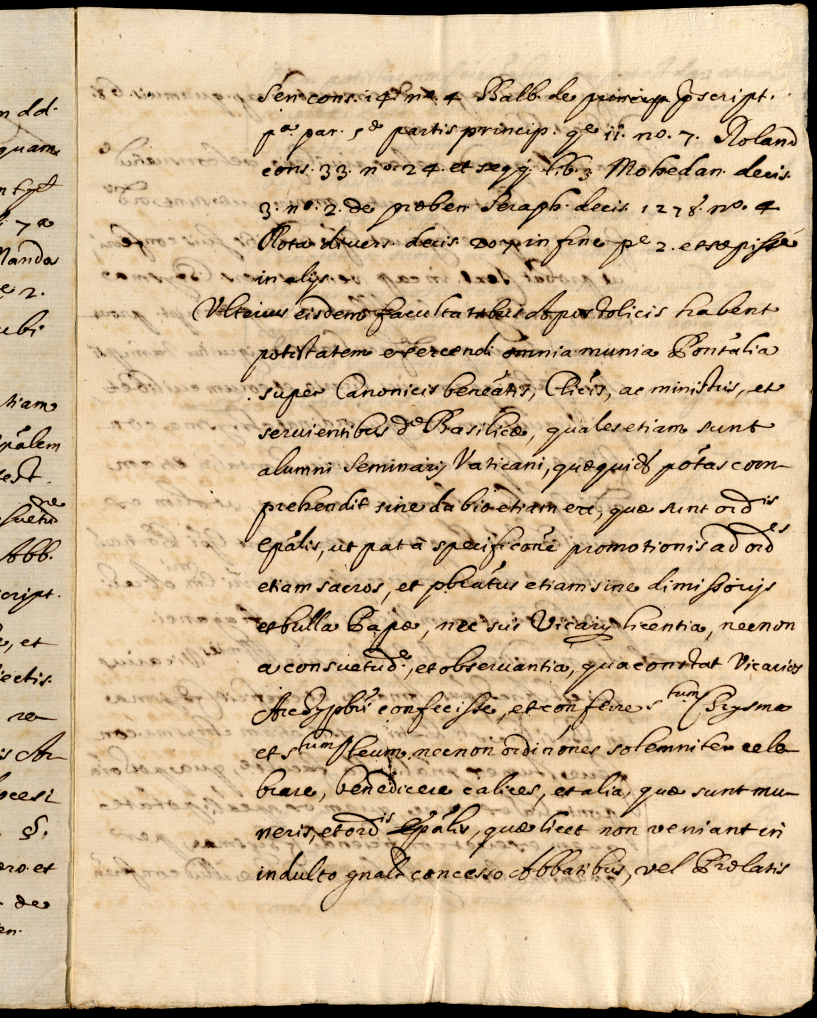 Sen cons. 14 nº. 4 Balb. de princip. pscript.
pª. par. 5ª partis princip. qe ii. no. 7. Roland
cons. 33. nº. 24. et seqq. lib. 3. Mohedan. decis.
3. nº. 2. de præben. Seraph. decis. 1278. nº. 4
Rota divers. decis. in fine pe 2. et sæpisse
in alijs.
Ulterius eisdem facultatibus Apostolicis habent
potestatem exercendi omnia munia Pontalia
super Canonicis beneatis, Clicis, ac ministris, et
servientibus de Basilicæ, quales etiam sunt
alumni Seminarij Vaticani, quæquid potas com-
prehendit sine dubio etiam ere, quæ sunt ordis
epalis, ut pat à specificone promotionis ad ordes
etiam sacros, et pbratus etiam sine dimissorijs
et bulla Papæ, nec sui Vicarij licentia, necnon
a consuetude, et observantia, qua constat Vicarios
Archypbri confecisse, et conferre stum Chrysma
et stum Oleum, necnon ordinones solemniter cele-
brare, benedicere calices, et alia, quæ sunt mu-
neris, et ordis Epalis, quæ licet non veniant in
indulto gnali concesso Abbatibus, vel Prælatis
n dd.
quam
7 a
Nanda
e 2.
ubi
etiam
palem
Abb.
script.
, et
iectis.
re
is Ar
ocesi
§.
ero et
de
en.